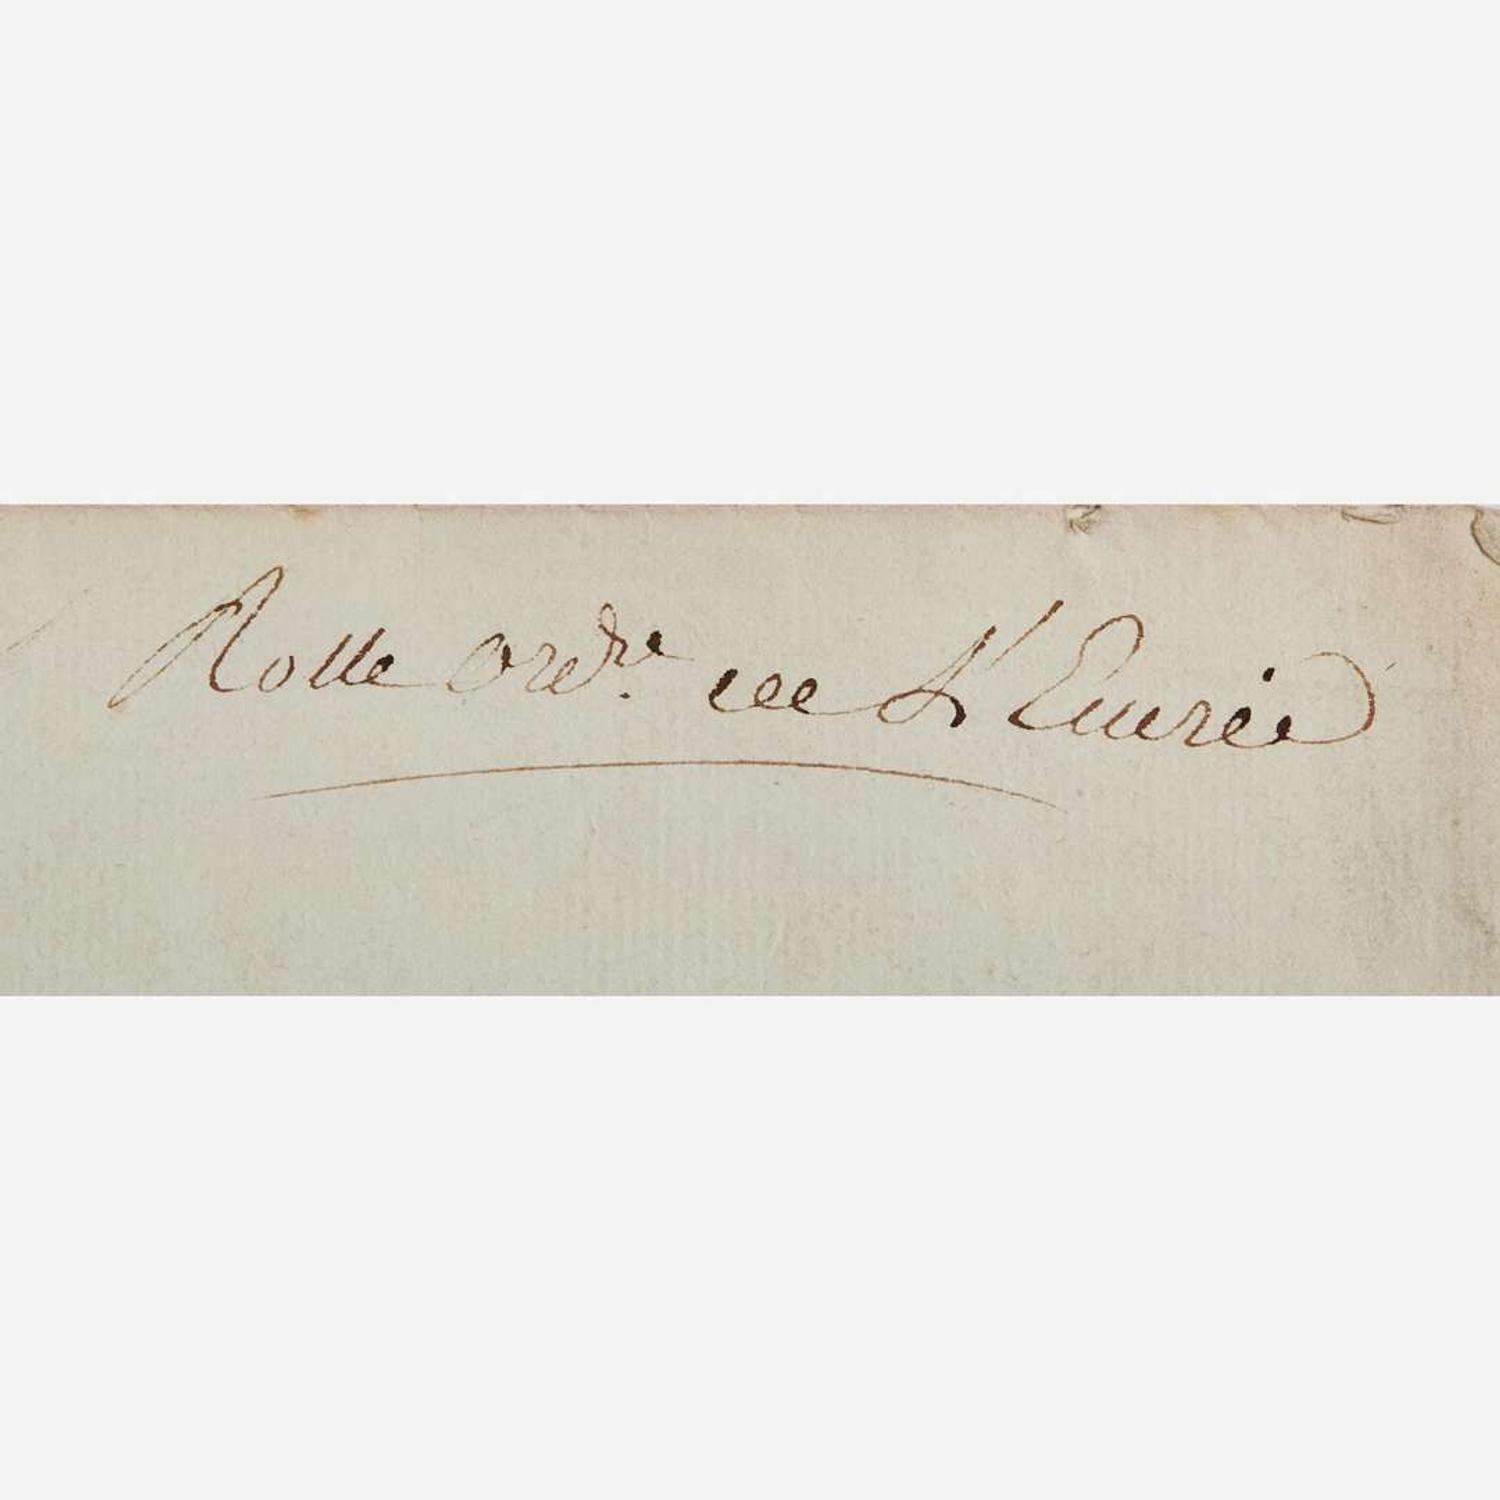 Rolle ord.re de L'Ecurie